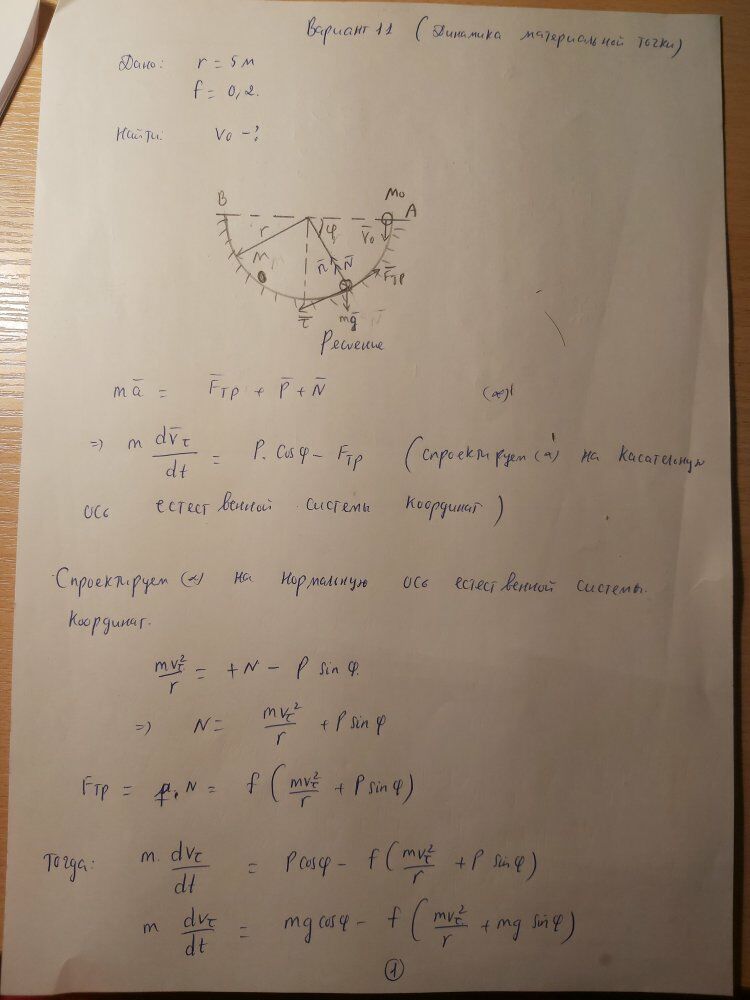 Вариант 11 (Динамика материальной точки)
Дано: r = 5 м
f = 0,2.
Найти: v₀ - ?
B M₀ A
r φ v̄₀
M n̄ N̄ F̄тр
τ̄ mḡ
Решение
mā = F̄тр + P̄ + N̄ (*)
=> m dv̄τ/dt = P. cosφ - Fтр (спроектируем (*) на касательную
ось естественной системы координат)
Спроектируем (*) на нормальную ось естественной системы.
координат.
mvτ²/r = + N - P sin φ.
=> N = mvτ²/r + P sin φ
Fтр = f. N = f (mvτ²/r + P sin φ)
Тогда: m. dvτ/dt = P cosφ - f (mvτ²/r + P sin φ)
m dvτ/dt = mg cosφ - f (mvτ²/r + mg sin φ)
1